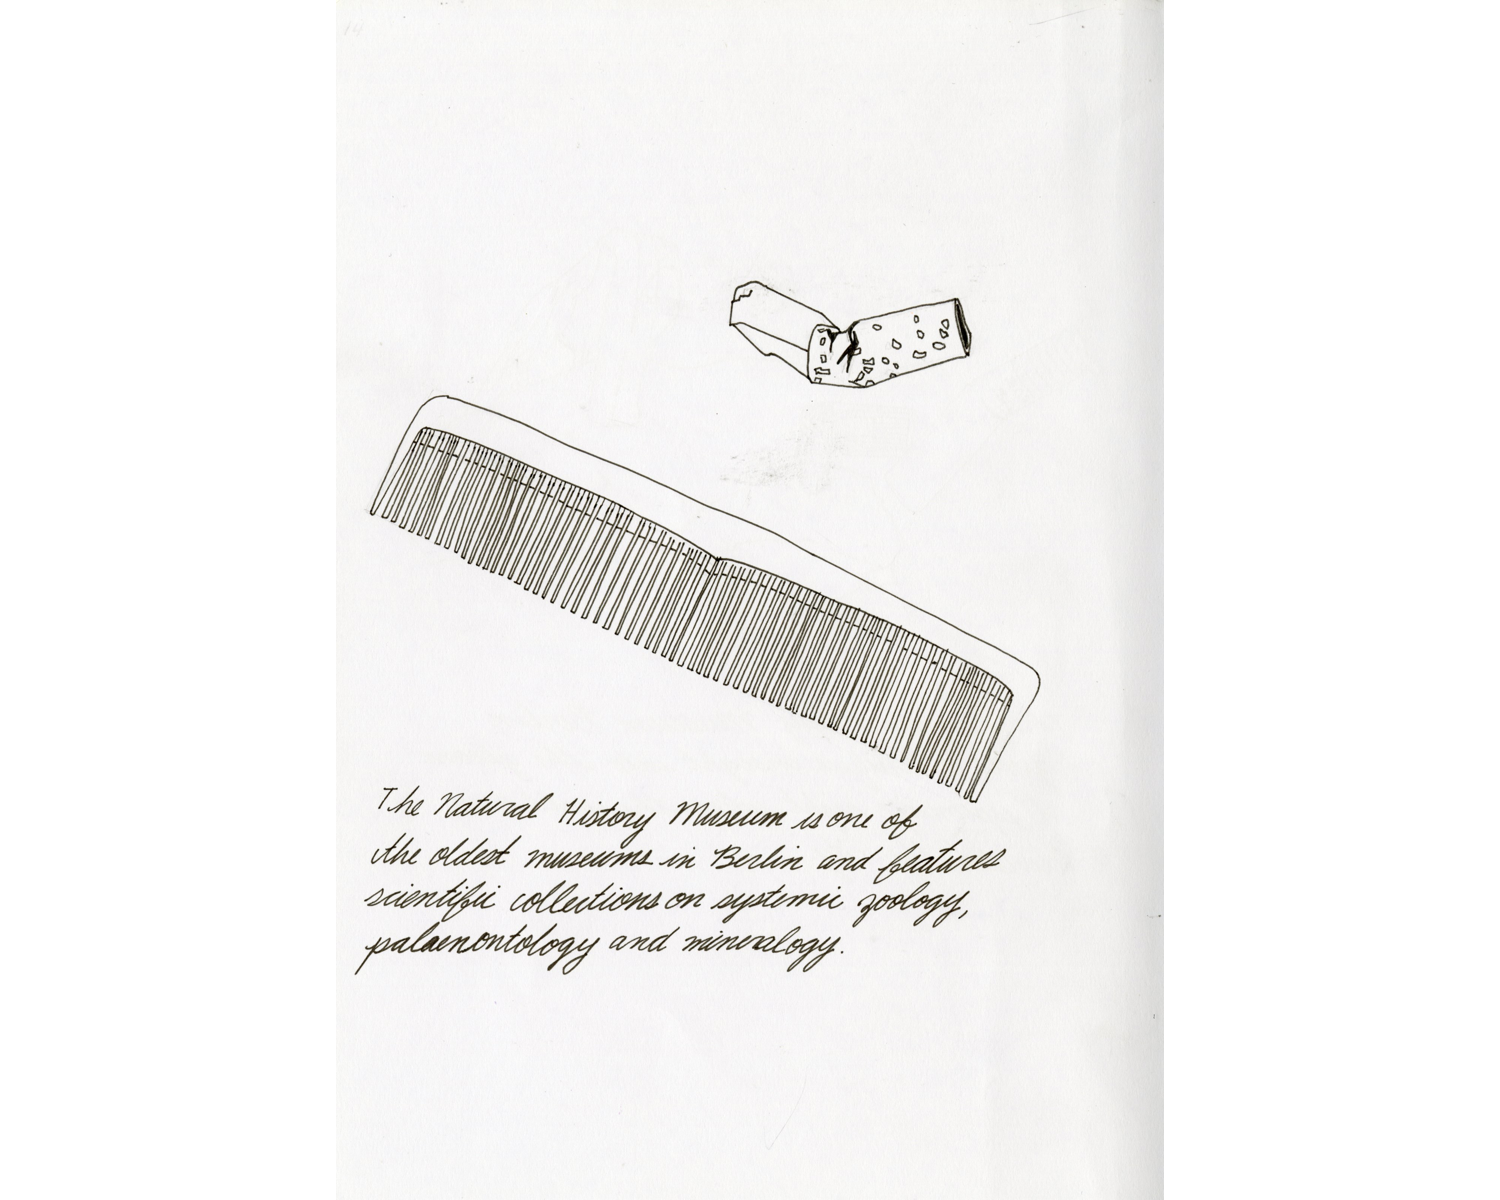 The Natural History Museum is one of
the oldest museums in Berlin and features
scientific collections on systemic zoology,
palaenontology and mineralogy.